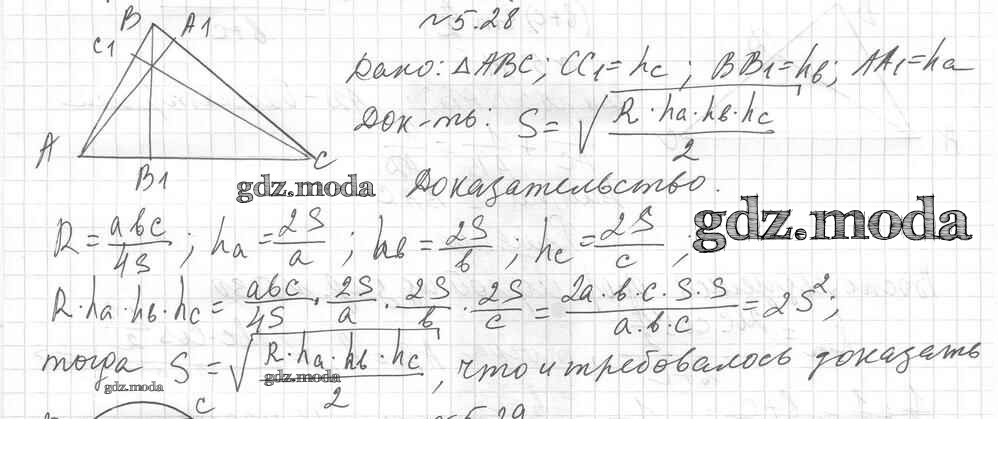 №5.28
B A1
C1
Дано: △ABC; CC₁=hc; BB₁=hв; AA₁=ha
Док-ть: S=√(R·ha·hв·hc / 2)
A C
B1
gdz.moda Доказательство.
gdz.moda
R=aвc/4S; ha=2S/a; hв=2S/в; hc=2S/c,
R·ha·hв·hc=aвc/4S·2S/a·2S/в·2S/c=2a·в·c·S·S/a·в·c=2S²;
тогда S=√(R·ha·hв·hc / 2), что и требовалось доказать
gdz.moda gdz.moda
C №5.29